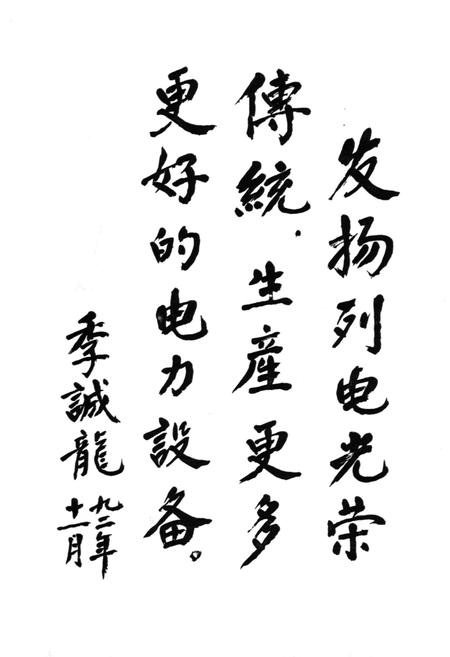 发扬列电光荣
傳統．生産更多
更好的电力設备。
季誠龍
九二年
十一月